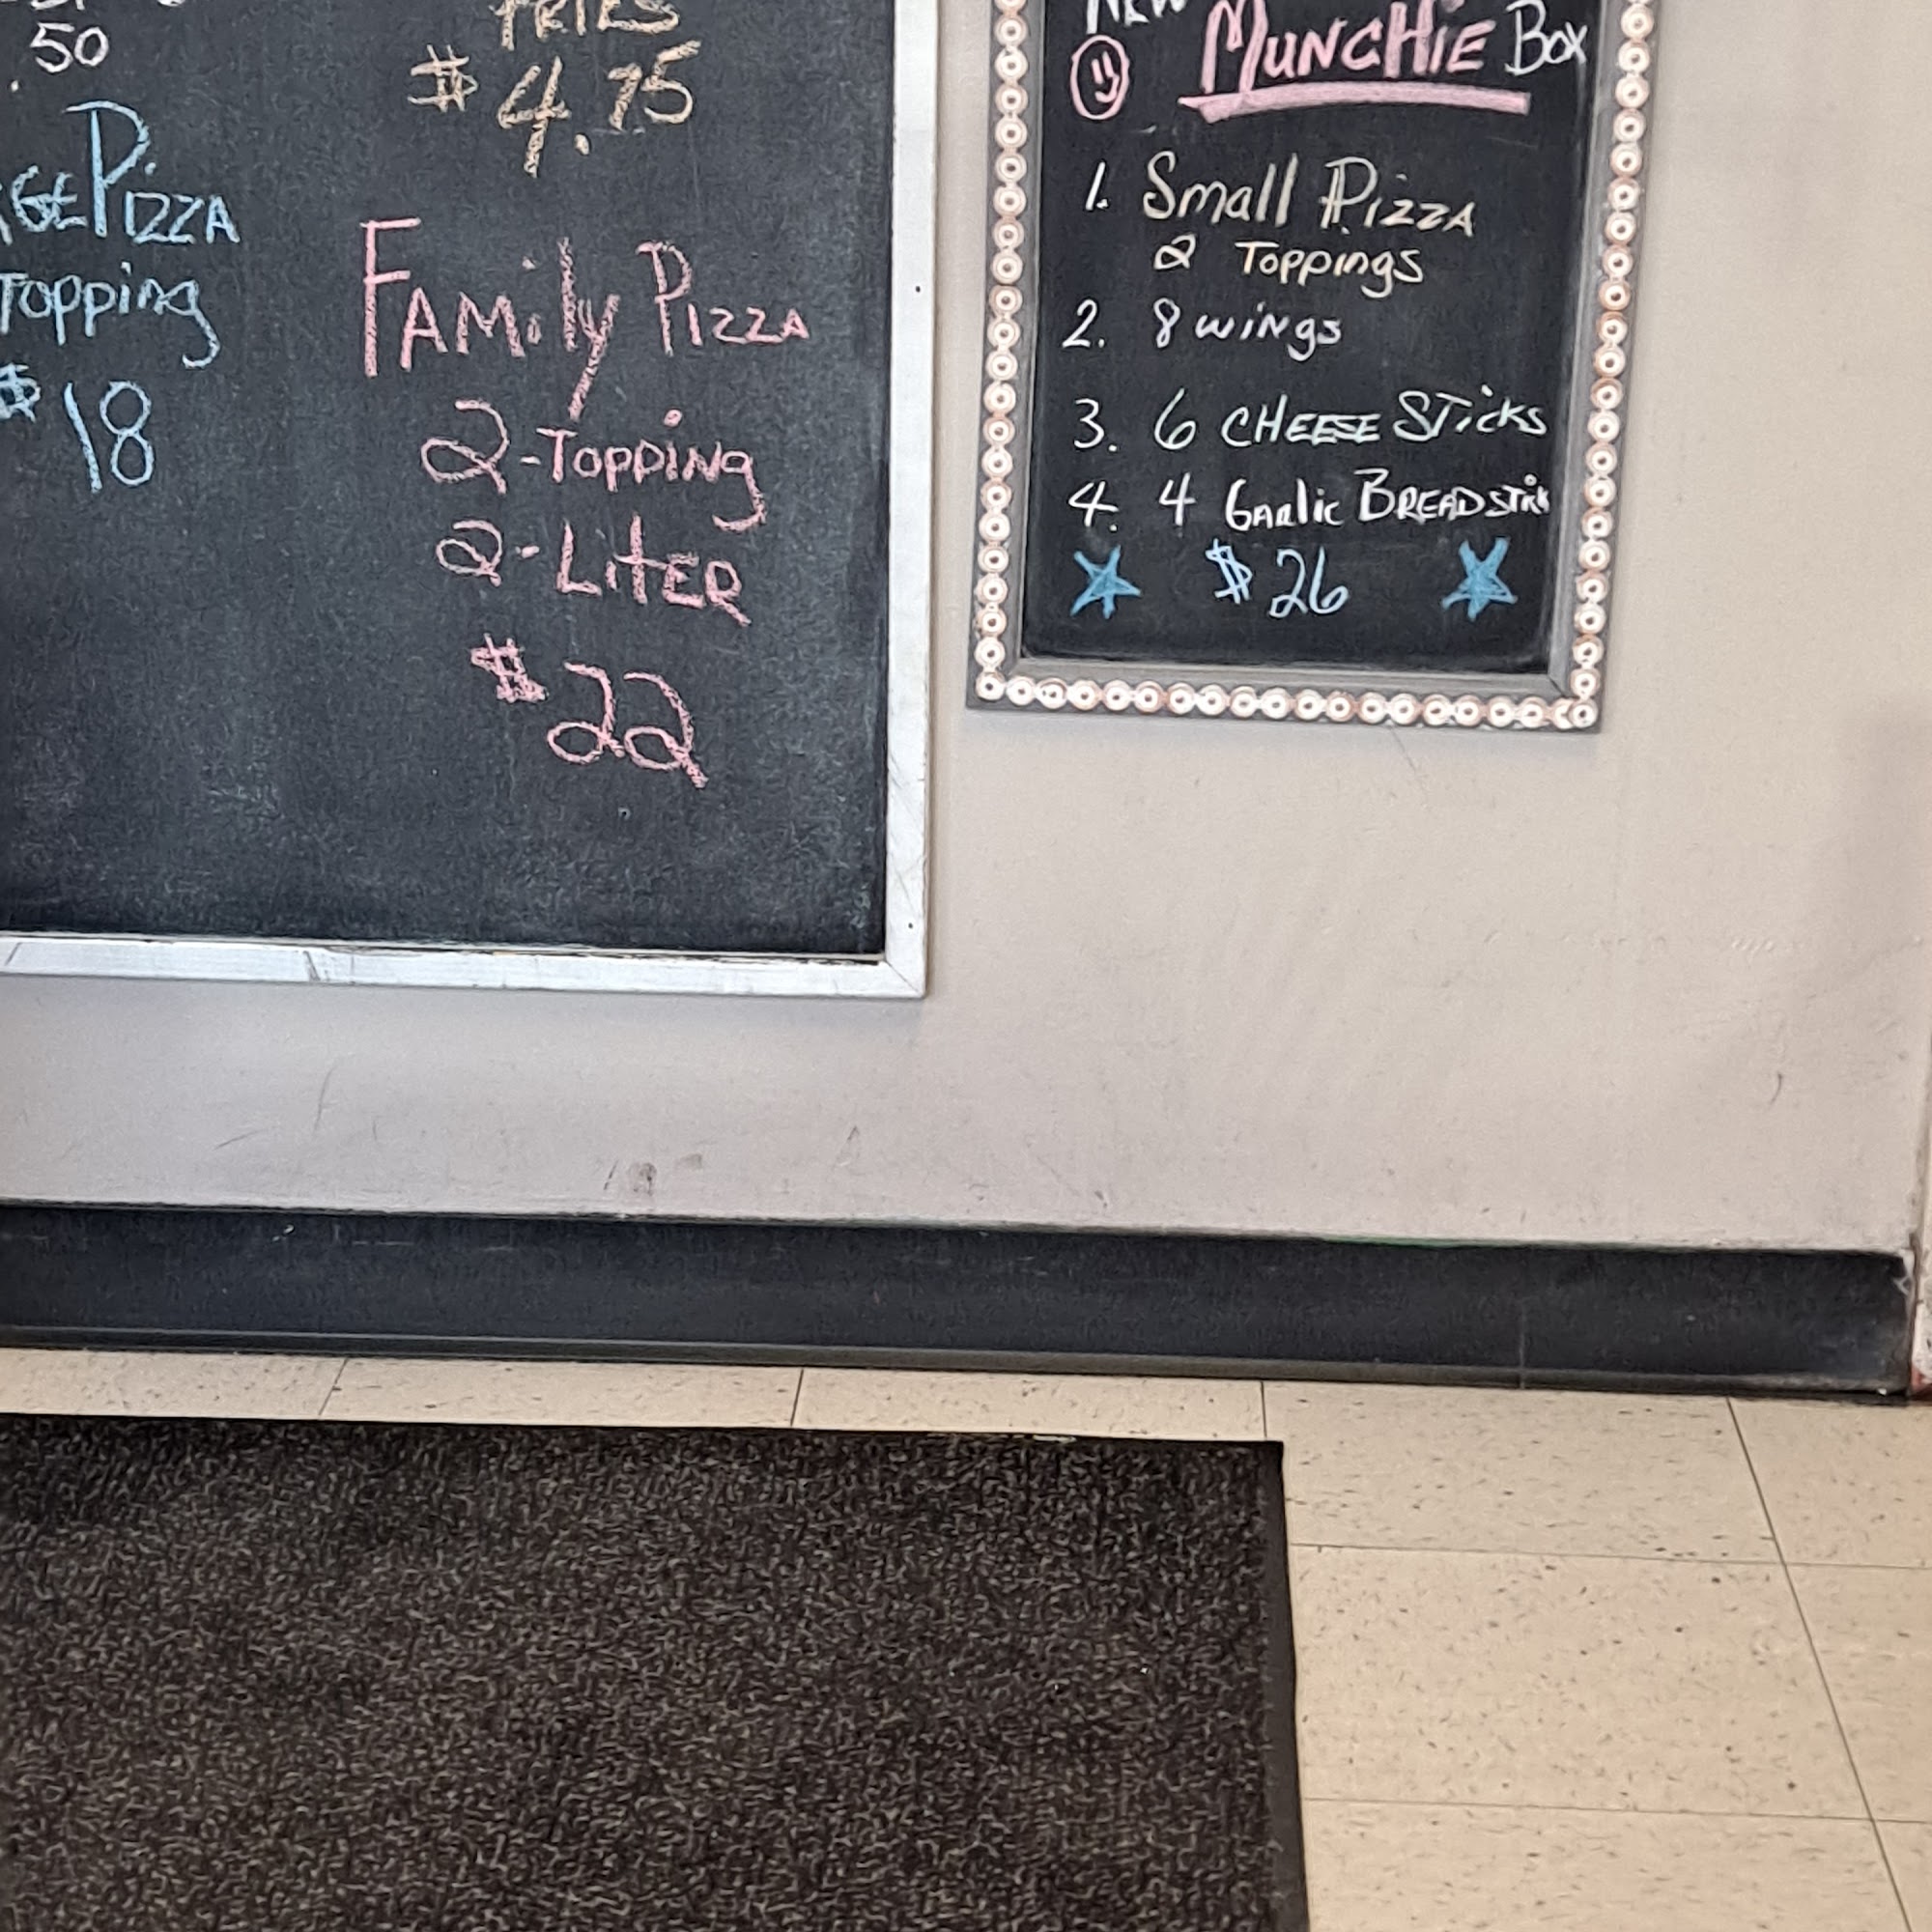 .50
FRIES
$4.75
PIZZA
TOPPING
$18
FAMILY PIZZA
2-TOPPING
2-LITER
$22
NEW MUNCHIE Box
1. Small PIZZA
2 TOPPINGS
2. 8 wings
3. 6 CHEESE STICKS
4. 4 GARLIC BREADSTIK
$26